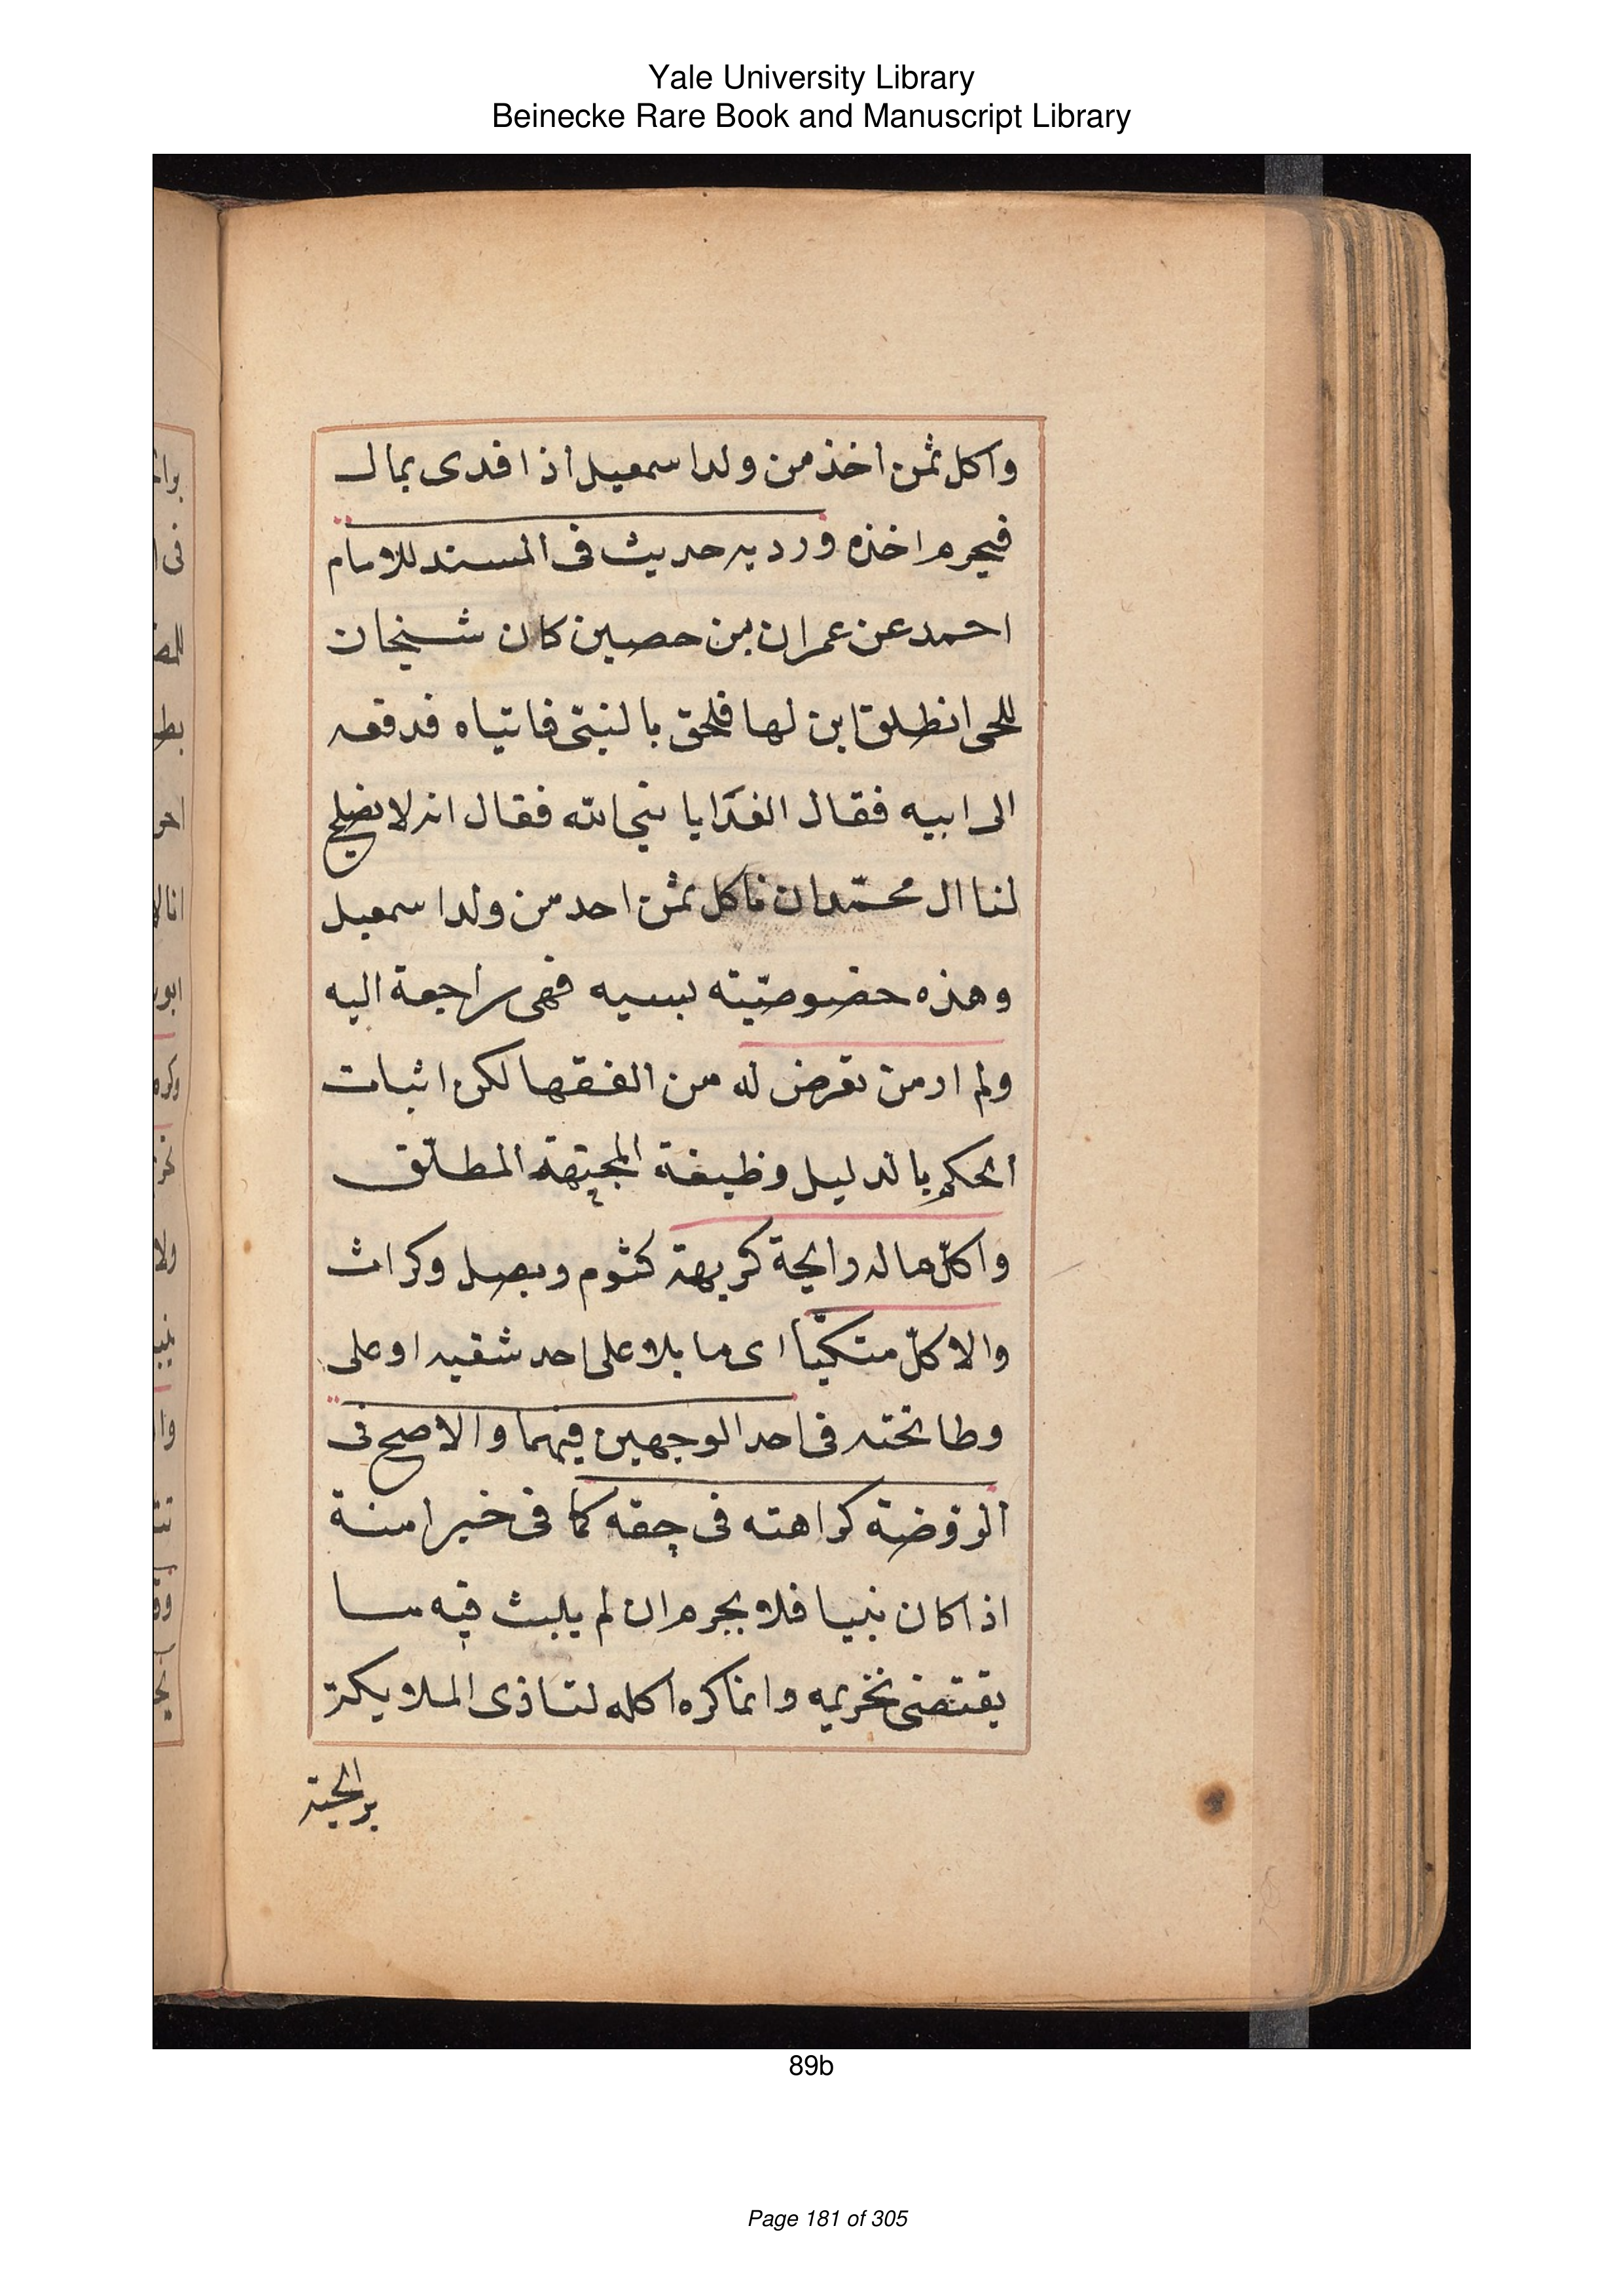 Yale University Library
Beinecke Rare Book and Manuscript Library
واكل ثمن اخذ من ولد اسمعيل اذا فدى بمال
فيحرم اخذه ورد به حديث فى المسند للامام
احمد عن عمران بن حصين كان شيخان
للحى انطلق ابن لها فلحق بالنبى فاتياه فدفعه
الى ابيه فقال الفدا يا نبى الله فقال انه لا يصلح
لنا ال محمّد ان ناكل ثمن احد من ولد اسمعيل
وهذه خصوصيّته بسببه فهى راجعة اليه
ولم ار من تعرض له من الفقها لكن اثبات
الحكم بالدليل وظيفة المجتهد المطلق
واكل ما له رايحة كريهة كثوم وبصل وكراث
والاكل متكيا اى مايلا على احد شقيه او على
وطا تحته فى احد الوجهين فيهما والاصح فى
الروضة كراهته فى حقه كما فى خير امنة
اذا كان نبيا فلا يحرم ان لم يلبث فيه ما
يقتضى تحريمه وانما كره اكله لتاذى الملايكة
89b
Page 181 of 305